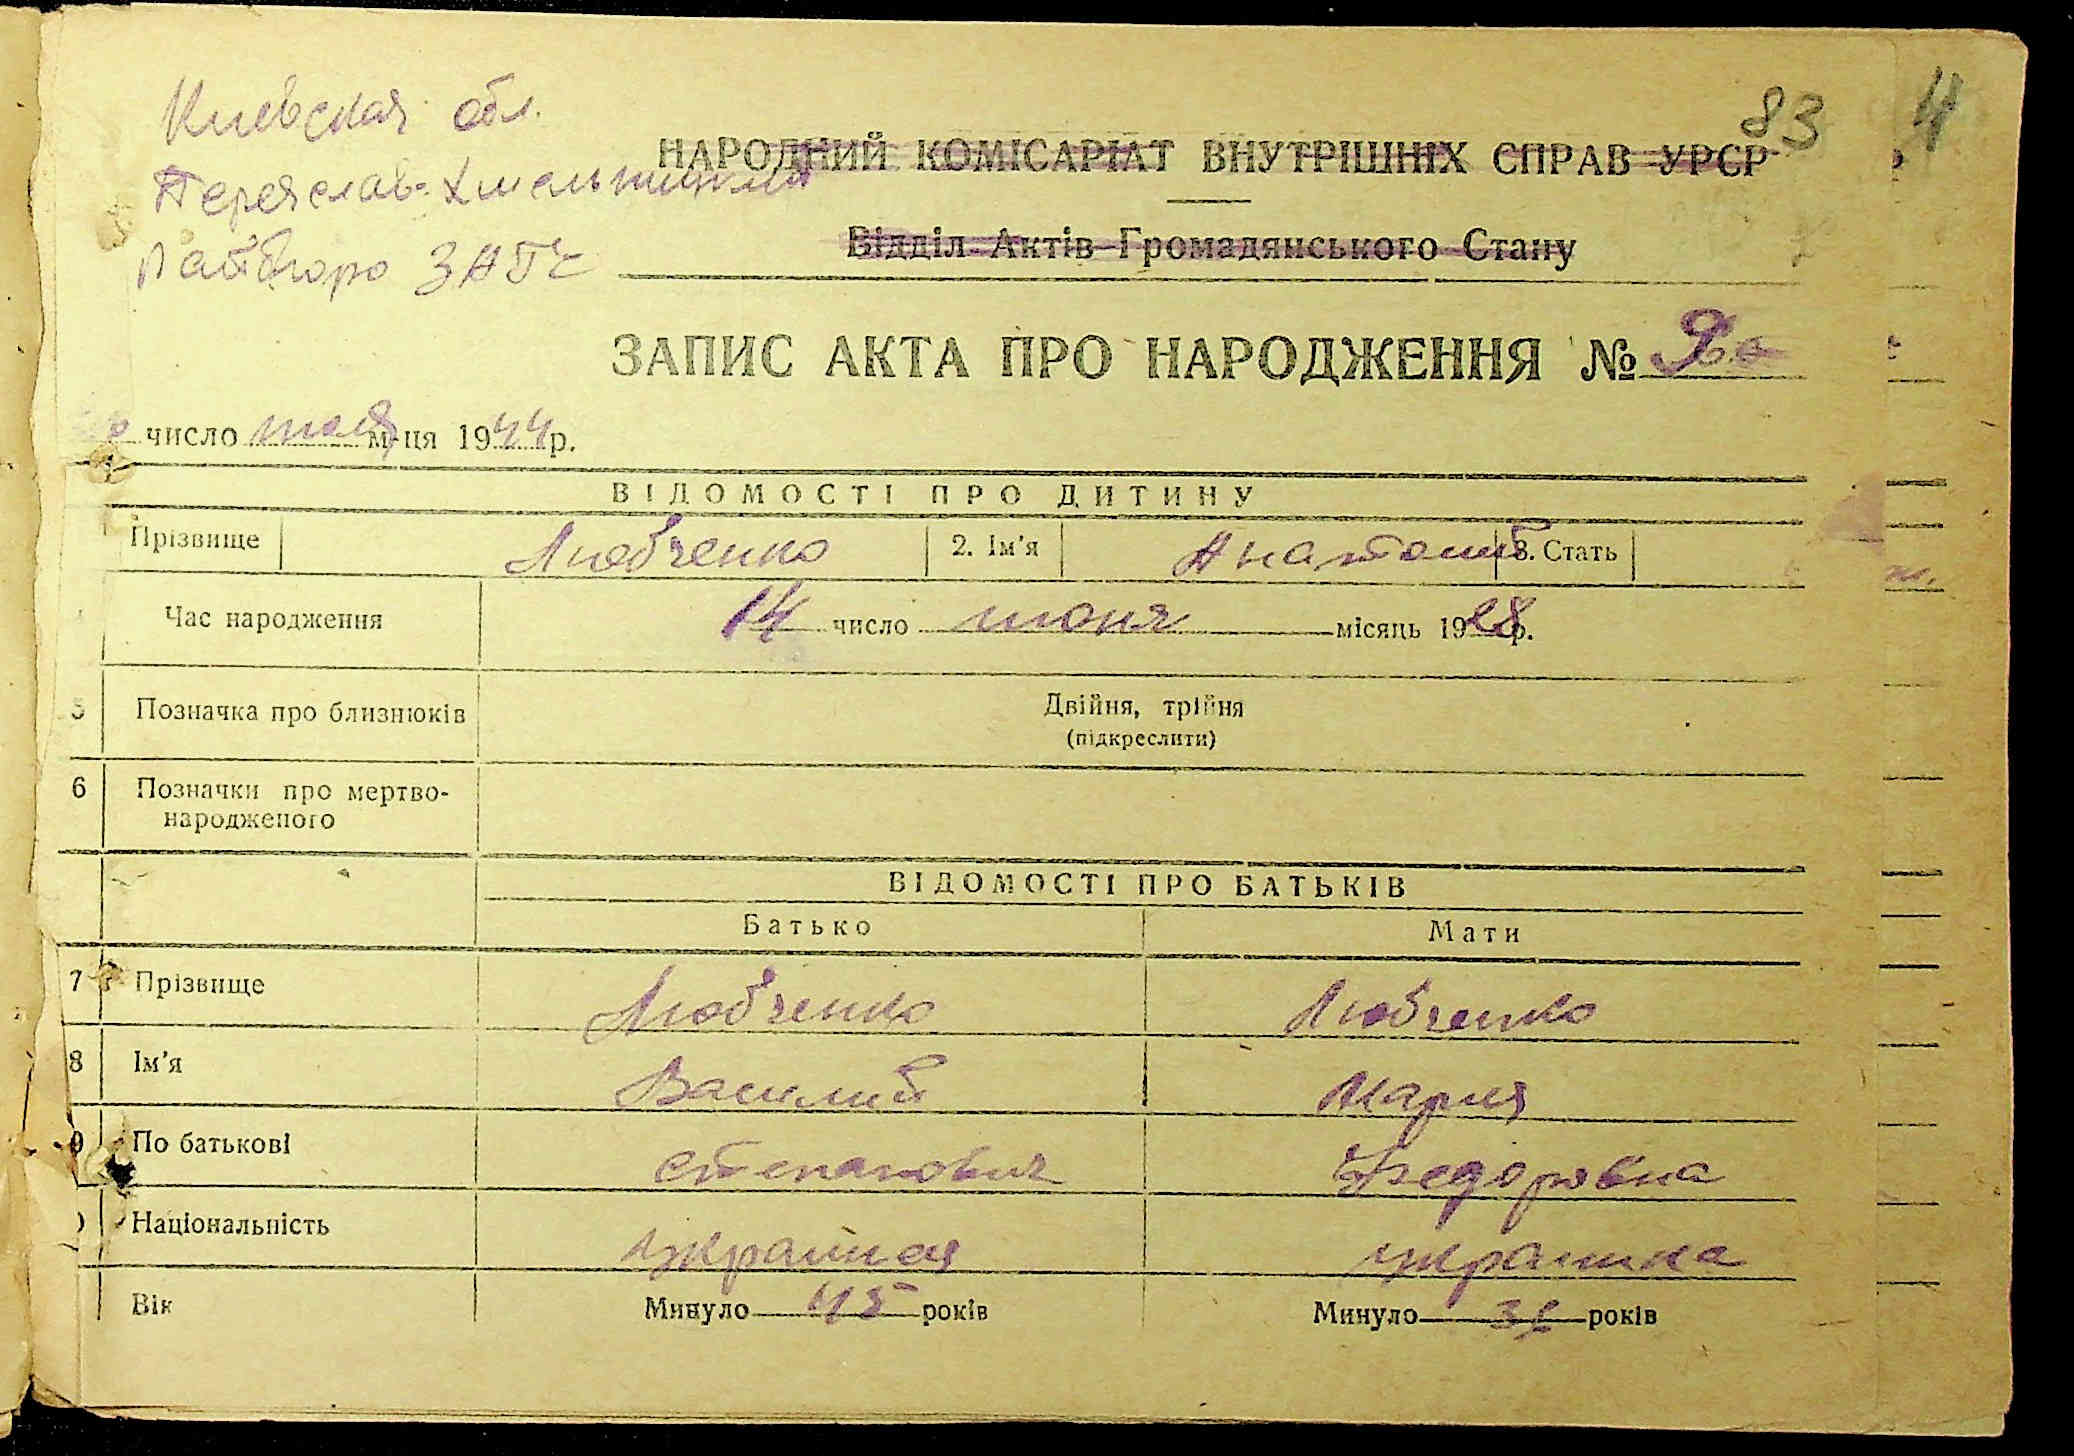 83 4
Киевская обл.
Переяслав-Хмельницкий
Райбюро ЗАГС
НАРОДНИЙ КОМІСАРІАТ ВНУТРІШНІХ СПРАВ УРСР
Відділ Актів Громадянського Стану
ЗАПИС АКТА ПРО НАРОДЖЕННЯ №
число июля м-ця 1944 р.
ВІДОМОСТІ ПРО ДИТИНУ
Прізвище Любченко 2. Ім'я Анатолий 3. Стать м.
Час народження 14 число июня місяць 1928 р.
5 Позначка про близнюків Двійня, трійня
(підкреслити)
6 Позначки про мертво-
народженого
ВІДОМОСТІ ПРО БАТЬКІВ
Батько Мати
7 Прізвище Любченко Любченко
8 Ім'я Василий Мария
9 По батькові Степанович Федоровна
Національність украинка
Вік Минуло 45 років Минуло років